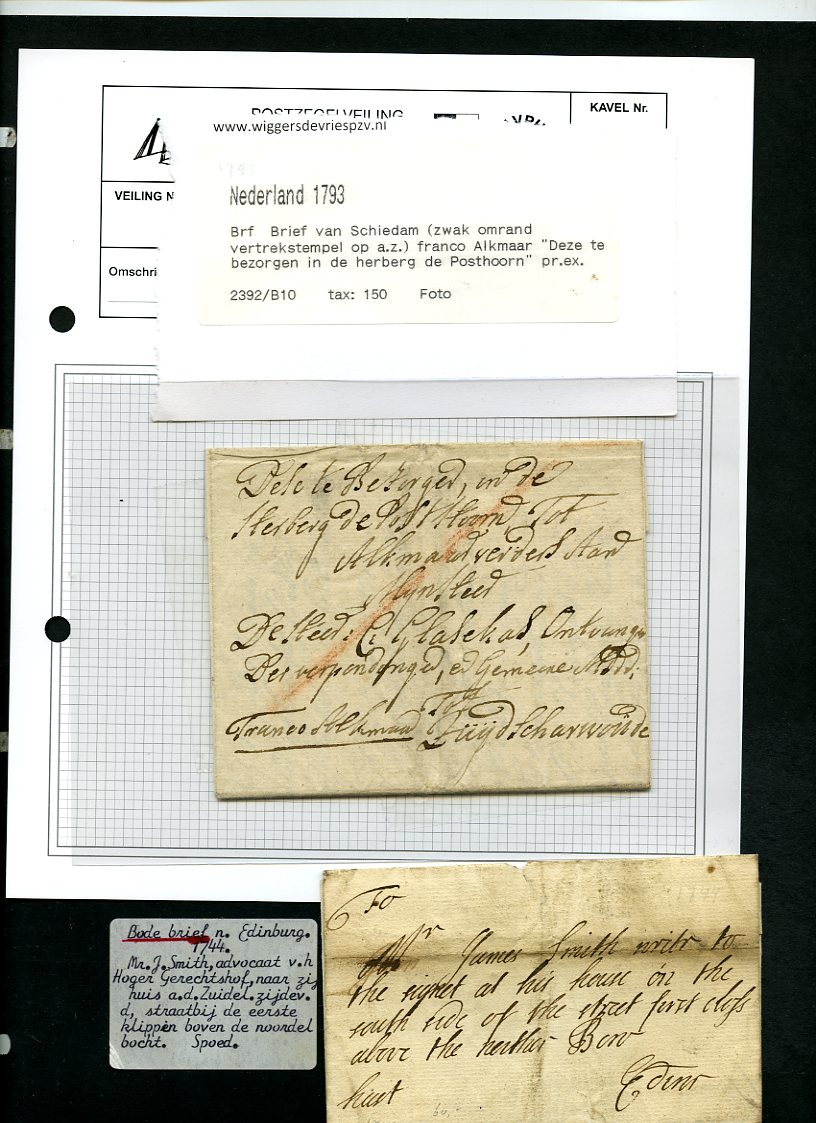 POSTZEGELVEILING
KAVEL Nr.
www.wiggersdevriespzv.nl
VEILING N
1793
Nederland 1793
Brf Brief van Schiedam (zwak omrand
vertrekstempel op a.z.) franco Alkmaar "Deze te
bezorgen in de herberg de Posthoorn" pr.ex.
Omschri
2392/B10 tax: 150 Foto
Dese te Besorgen, in de
Herberg de Post Hoorn, Tot
Alkmaar verders aan
Mijn Heer
De Heer: C: Ontvanger
Der verpondingen, en Gemeene
Tot
Franco Alkmaar Zuijdscharwoude
Bode brief n. Edinburg.
1744.
Mr. J. Smith, advocaat v.h
Hoger Gerechtshof, naar zij
huis a.d. Zuidel. zijde v.
d, straat bij de eerste
klippen boven de noordel
bocht. Spoed.
To
Mr James Smith writr to
the signet at his house on the
south side of the street first closs
above the neither Bow
hast Edinr
60,-